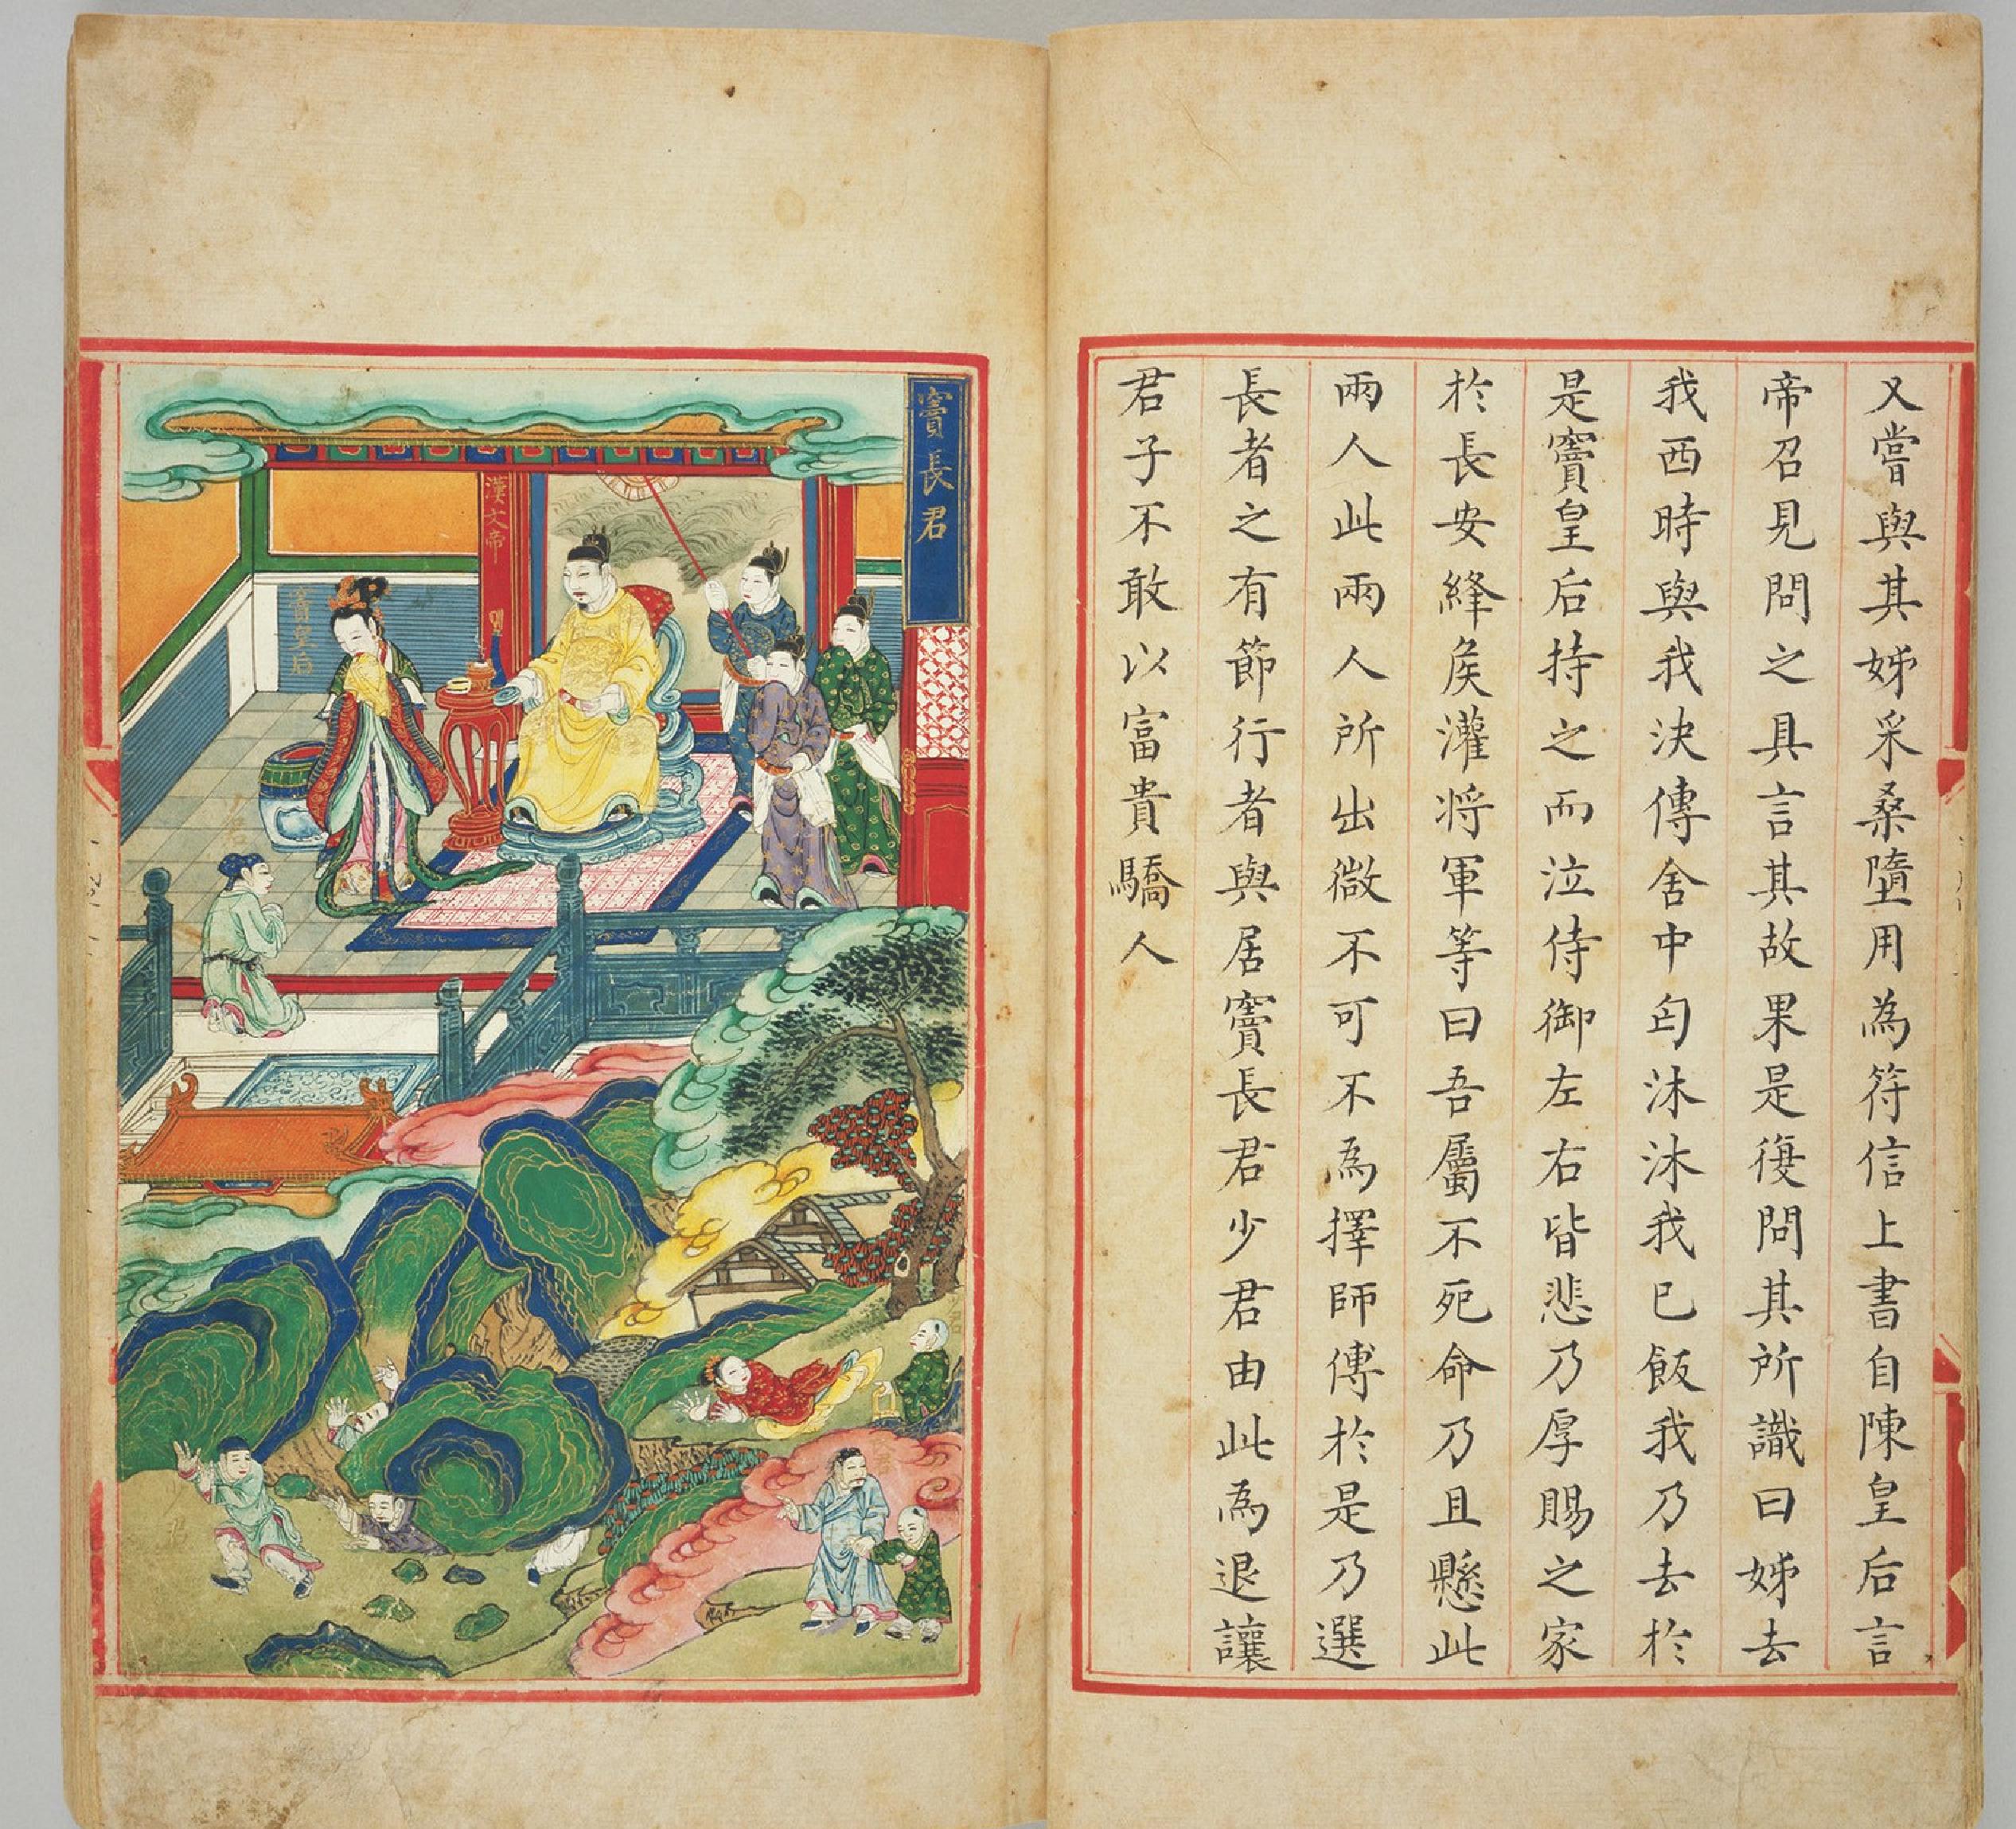 又嘗與其姊采桑墮用為符信上書自陳皇后言
帝召見問之具言其故果是復問其所識曰姊去
我西時與我決傳舍中匄沐沐我已飯我乃去於
是竇皇后持之而泣侍御左右皆悲乃厚賜之家
於長安絳侯灌將軍等曰吾屬不死命乃且懸此
兩人此兩人所出微不可不為擇師傅於是乃選
長者之有節行者與居竇長君少君由此為退讓
君子不敢以富貴驕人
竇長君
漢文帝
竇皇后
少君